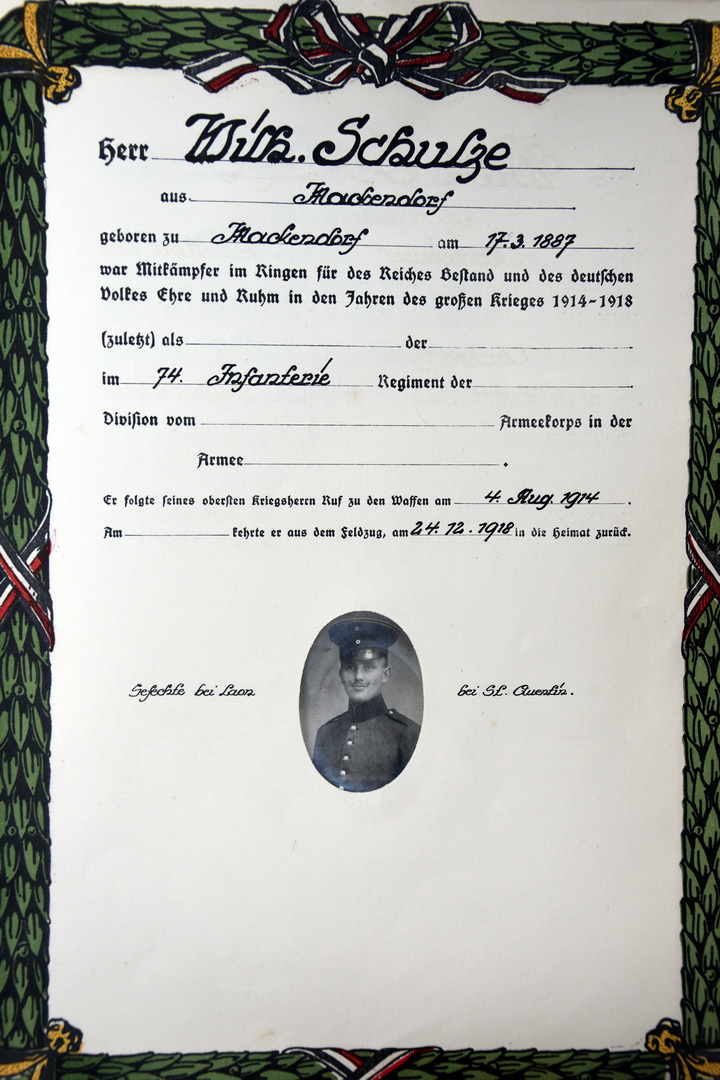 Herr Wilh. Schulze
aus Mackendorf
geboren zu Mackendorf am 17.3.1887
war Mitkämpfer im Ringen für des Reiches Bestand und des deutschen
Volkes Ehre und Ruhm in den Jahren des großen Krieges 1914-1918
(zuletzt) als der
im 74. Infanterie Regiment der
Division vom Armeekorps in der
Armee .
Er folgte seines obersten Kriegsherrn Ruf zu den Waffen am 4. Aug. 1914 .
Am kehrte er aus dem Feldzug, am 24.12.1918 in die Heimat zurück.
Gefechte bei Laon bei St. Quentin.